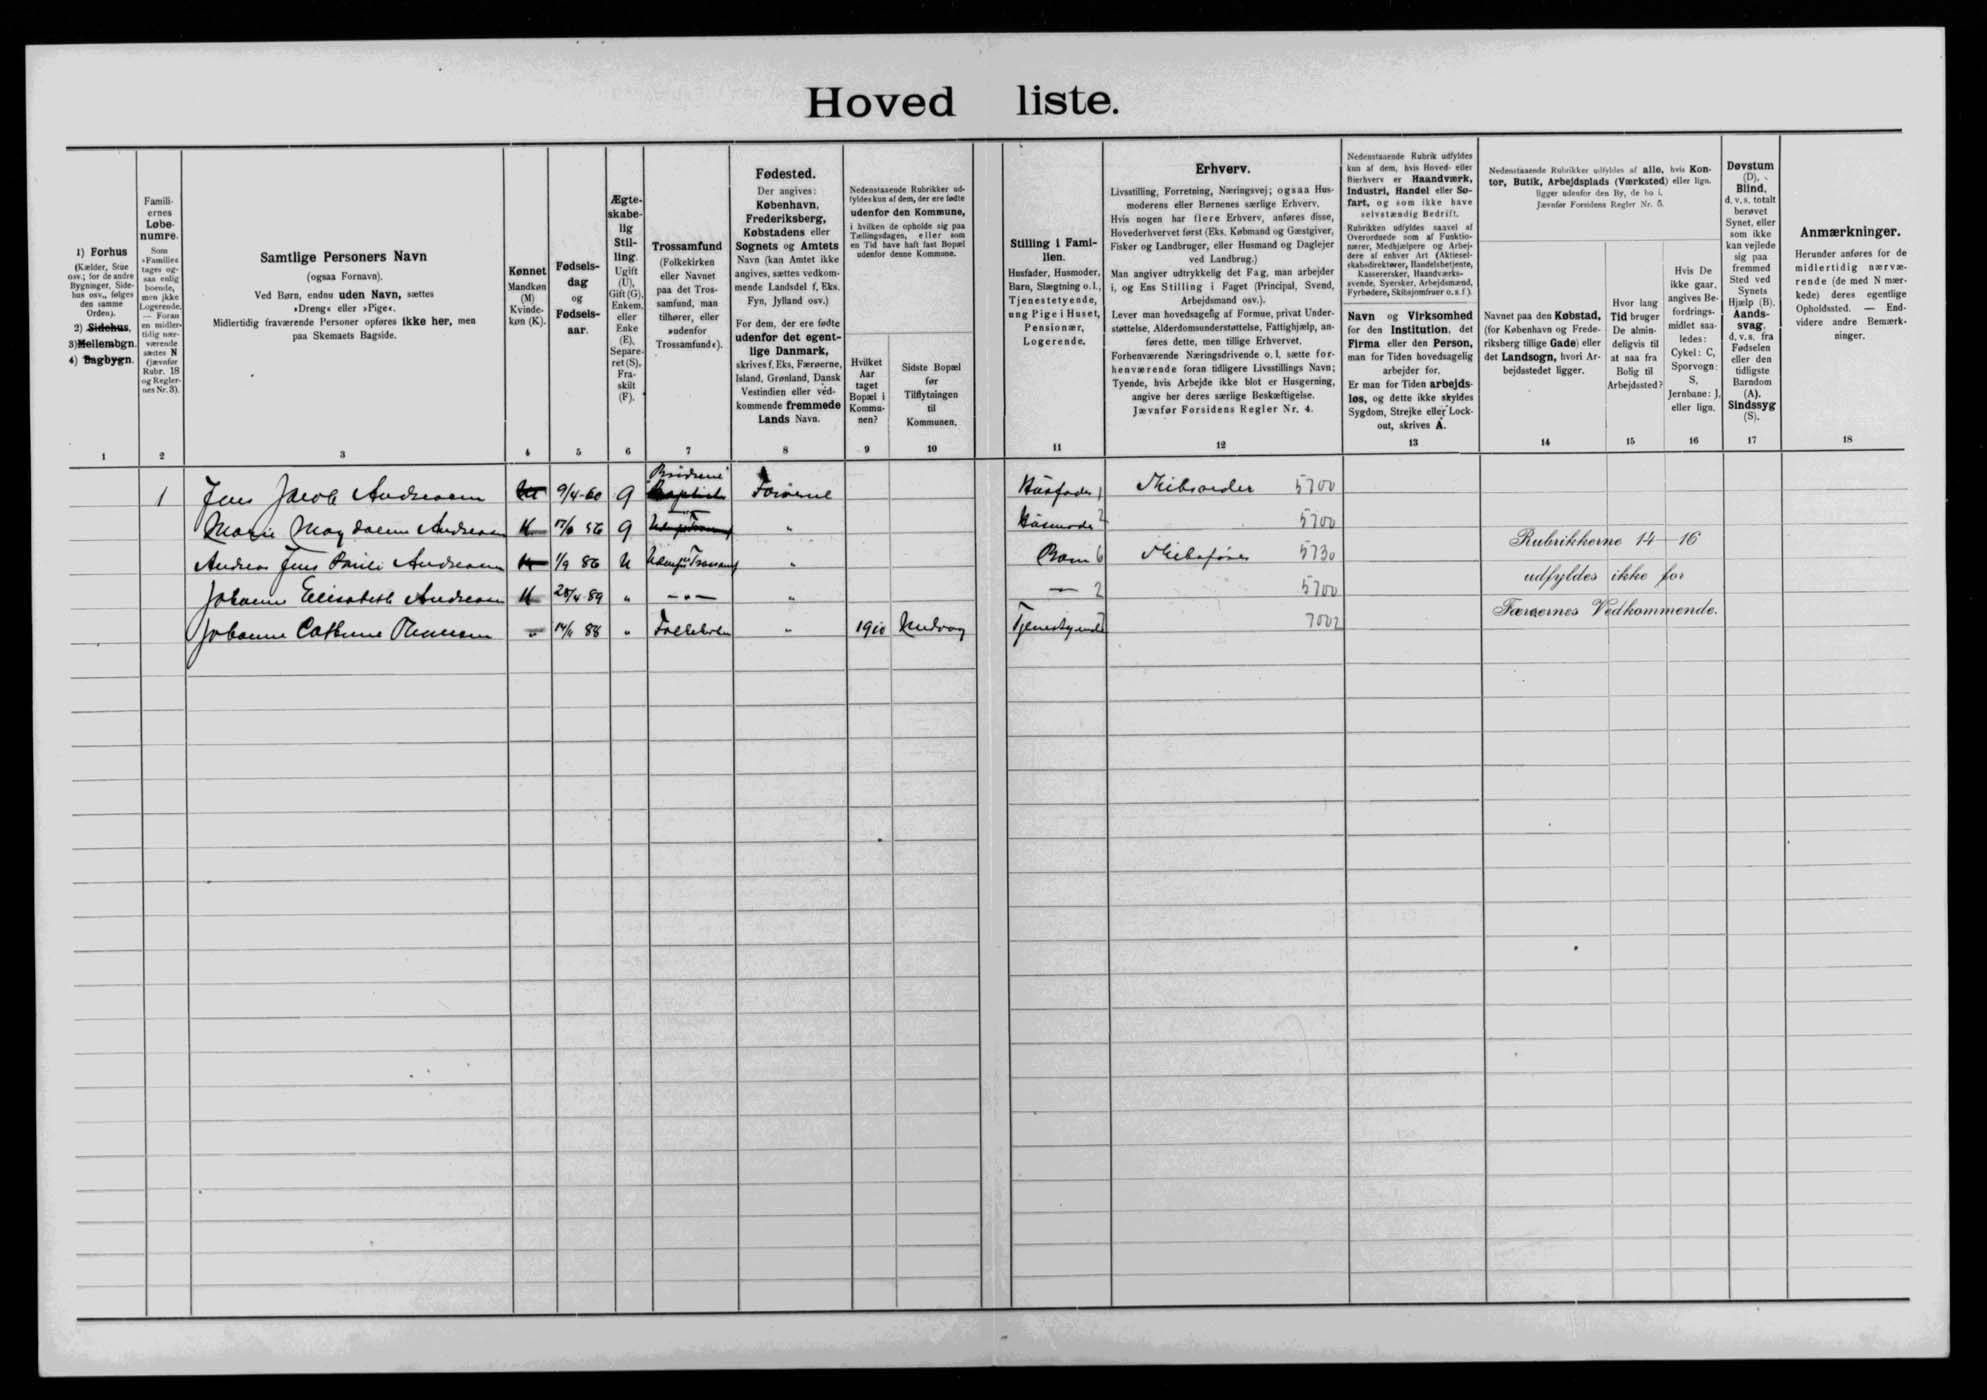 Hoved liste.
1) Forhus
(Kælder, Stue
osv.; for de andre
Bygninger, Side-
hus osv., følges
den samme
Orden).
2) Sidehus,
3) Mellembgn.
4) Bagbygn.
1
Famili-
ernes
Løbe-
numre.
Som
»Familie«
tages og-
saa enlig
boende,
men ikke
Logerende.
— Foran
en midler-
tidig nær-
værende
sættes N
(jævnfør
Rubr. 18
og Regler-
nes Nr. 3).
2
Samtlige Personers Navn
(ogsaa Fornavn).
Ved Børn, endnu uden Navn, sættes
»Dreng« eller »Pige«.
Midlertidig fraværende Personer opføres ikke her, men
paa Skemaets Bagside.
3
Kønnet
Mandkøn
(M)
Kvinde-
køn (K).
4
Fødsels-
dag
og
Fødsels-
aar.
5
Ægte-
skabe-
lig
Stil-
ling.
Ugift
(U),
Gift (G),
Enkem.
eller
Enke
(E),
Separe-
ret (S),
Fra-
skilt
(F).
6
Trossamfund
(Folkekirken
eller Navnet
paa det Tros-
samfund, man
tilhører, eller
»udenfor
Trossamfund«).
7
Fødested.
Der angives:
København,
Frederiksberg,
Købstadens eller
Sognets og Amtets
Navn (kan Amtet ikke
angives, sættes vedkom-
mende Landsdel f. Eks.
Fyn, Jylland osv.)
For dem, der ere fødte
udenfor det egent-
lige Danmark,
skrives f. Eks. Færøerne,
Island, Grønland, Dansk
Vestindien eller ved-
kommende fremmede
Lands Navn.
8
Nedenstaaende Rubrikker ud-
fyldes kun af dem, der ere fødte
udenfor den Kommune,
i hvilken de opholde sig paa
Tællingsdagen, eller som
en Tid have haft fast Bopæl
udenfor denne Kommune.
Hvilket
Aar
taget
Bopæl i
Kommu-
nen?
9
Sidste Bopæl
før
Tilflytningen
til
Kommunen.
10
Stilling i Fami-
lien.
Husfader, Husmoder,
Barn, Slægtning o. l.,
Tjenestetyende,
ung Pige i Huset,
Pensionær,
Logerende.
11
Erhverv.
Livsstilling, Forretning, Næringsvej; ogsaa Hus-
moderens eller Børnenes særlige Erhverv.
Hvis nogen har flere Erhverv, anføres disse,
Hovederhvervet først (Eks. Købmand og Gæstgiver,
Fisker og Landbruger, eller Husmand og Daglejer
ved Landbrug.)
Man angiver udtrykkelig det Fag, man arbejder
i, og Ens Stilling i Faget (Principal, Svend,
Arbejdsmand osv.).
Lever man hovedsagelig af Formue, privat Under-
støttelse, Alderdomsunderstøttelse, Fattighjælp, an-
føres dette, men tillige Erhvervet.
Forhenværende Næringsdrivende o. l. sætte for-
henværende foran tidligere Livsstillings Navn;
Tyende, hvis Arbejde ikke blot er Husgerning,
angive her deres særlige Beskæftigelse.
Jævnfør Forsidens Regler Nr. 4.
12
Nedenstaaende Rubrik udfyldes
kun af dem, hvis Hoved- eller
Bierhverv er Haandværk,
Industri, Handel eller Sø-
fart, og som ikke have
selvstændig Bedrift.
Rubrikken udfyldes saavel af
Overordnede som af Funktio-
nærer, Medhjælpere og Arbej-
dere af enhver Art (Aktiesel-
skabsdirektører, Handelsbetjente,
Kasserersker, Haandværks-
svende, Syersker, Arbejdsmænd,
Fyrbødere, Skibsjomfruer o. s. f.).
Navn og Virksomhed
for den Institution, det
Firma eller den Person,
man for Tiden hovedsagelig
arbejder for.
Er man for Tiden arbejds-
løs, og dette ikke skyldes
Sygdom, Strejke eller Lock-
out, skrives A.
13
Nedenstaaende Rubrikker udfyldes af alle, hvis Kon-
tor, Butik, Arbejdsplads (Værksted) eller lign.
ligger udenfor den By, de bo i.
Jævnfør Forsidens Regler Nr. 5.
Navnet paa den Købstad,
(for København og Frede-
riksberg tillige Gade) eller
det Landsogn, hvori Ar-
bejdsstedet ligger.
14
Hvor lang
Tid bruger
De almin-
deligvis til
at naa fra
Bolig til
Arbejdssted?
15
Hvis De
ikke gaar,
angives Be-
fordrings-
midlet saa-
ledes:
Cykel: C,
Sporvogn:
S,
Jernbane: J,
eller lign.
16
Døvstum
(D),
Blind,
d. v. s. totalt
berøvet
Synet, eller
som ikke
kan vejlede
sig paa
fremmed
Sted ved
Synets
Hjælp (B).
Aands-
svag,
d. v. s. fra
Fødselen
eller den
tidligste
Barndom
(A).
Sindssyg
(S).
17
Anmærkninger.
Herunder anføres for de
midlertidig nærvæ-
rende (de med N mær-
kede) deres egentlige
Opholdssted. — End-
videre andre Bemærk-
ninger.
18
1 Jens Jacob Andreasen M 9/4-60 G Baptist Færøerne Husfader 1 Skibsreder 5700
Marie Magdalene Andreasen K G " Husmoder 2 5700
Andreas Jens Pauli Andreasen M 1/9 86 U Udenfor Trossamf " Barn 6 Skibsfører 5730
Johanne Elisabeth Andreasen K 28/4-89 " —"— " — 2 5700
Johanne Cathrine " 88 " Folkekirken " 1910 Tjenestetyende 7 7002
Rubrikkerne 14—16
udfyldes ikke for
Færøernes Vedkommende.